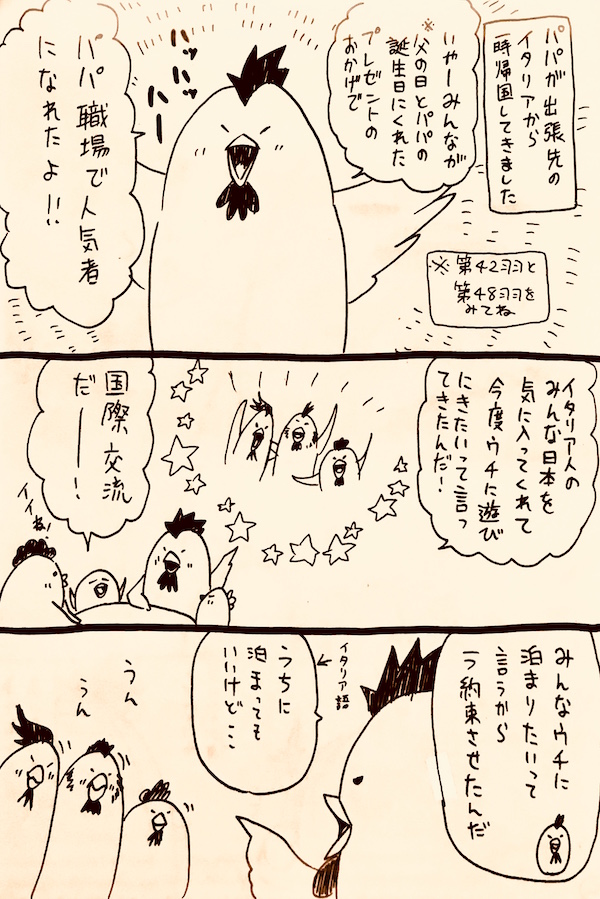 パパが出張先の
イタリアから
一時帰国してきました
いやーみんなが
※父の日とパパの
誕生日にくれた
プレゼントの
おかげで
ハッハッハー
パパ職場で人気者
になれたよ!!
※第42羽と
第48羽を
みてね
イタリア人の
みんな日本を
気に入ってくれて
今度ウチに遊び
にきたいって言っ
てきたんだ!
国際交流
だーー!
イイね!
みんなウチに
泊まりたいって
言うから
1つ約束させたんだ
イタリア語
うちに
泊まっても
いいけど…
うん
うん